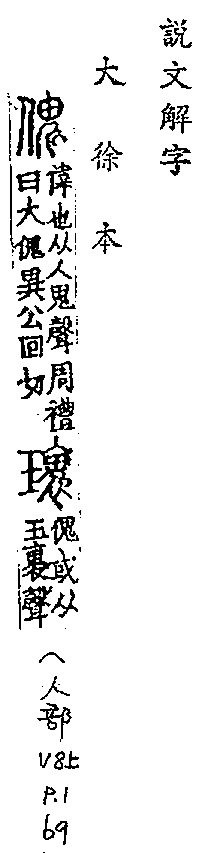 説文解字
大徐本
傀 偉也从人鬼聲周禮
曰大傀異公回切 瓌 傀或从
玉褱聲
(人部
V8上
P.1
69